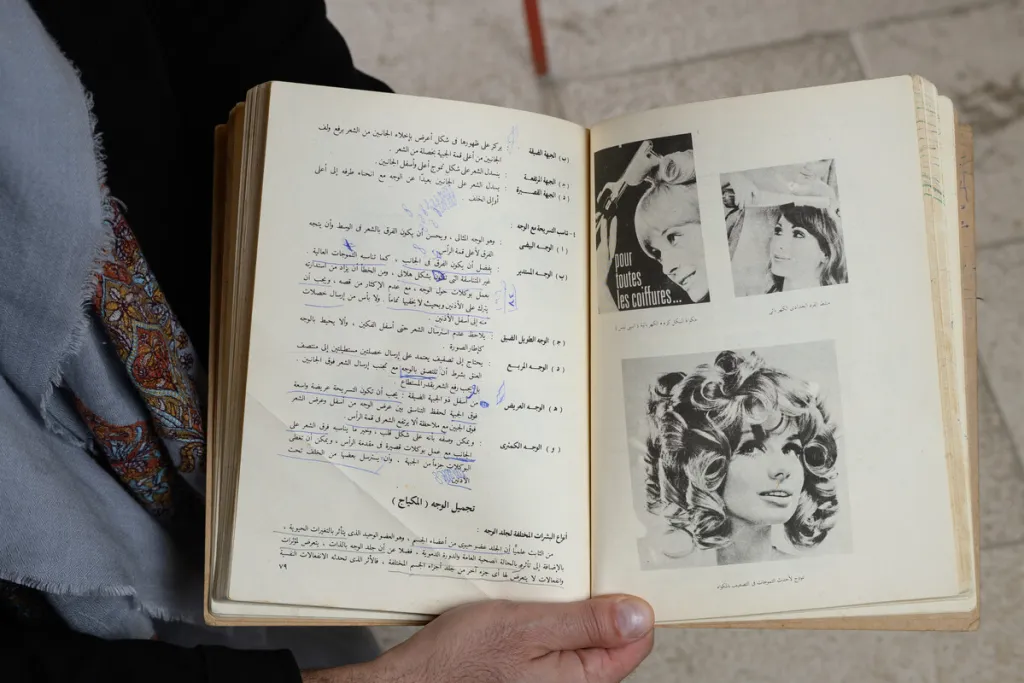 (ب) الجبهة الضيقة : يركز على ظهورها فى شكل أعرض بإخلاء الجانبين من الشعر برفع ولف
الجانبين من أعلى قمة الجبهة بخصلة من الشعر .
(ج) الجبهة المرتفعة : يسدل الشعر على شكل تموج أعلى وأسفل الجانبين .
(د) الجبهة القصيرة : يسدل الشعر على الجانبين بعيدًا عن الوجه مع انحناء طرفه إلى أعلى
أو إلى الخلف .
تناسب التسريحة مع الوجه :
(ا) الوجه البيضى : وهو الوجه المثالى ، ويحسن أن يكون الفرق بالشعر فى الوسط وأن يتجه
الفرق لأعلى قمة الرأس .
(ب) الوجه المستدير : يفضل أن يكون الفرق فى الجانب ، كما تناسب التموجات العالية
غير المتناسقة التى تكون بشكل هلالى ، ومن الخطأ أن يزاد من استدارته
بعمل بوكلات حول الوجه ، مع عدم الإكثار من قصه ، ويجب أن
يترك على الأذنين وبحيث لا يغطيها تماماً . ولا بأس من إرسال خصلات
منه إلى أسفل الأذنين .
(ج) الوجه الطويل الضيق : يلاحظ عدم استرسال الشعر حتى أسفل الفكين ، وألا يحيط بالوجه
كإطار الصورة .
(د) الوجه المربع : يحتاج إلى تصفيف يعتمد على إرسال خصلتين مستطيلتين إلى منتصف
العنق بشرط أن تلتصق بالوجه مع تجنب إرسال الشعر فوق الجانبين .
بل يجب رفع الشعر بقدر المستطاع .
(ه) الوجه العريض من أسفل ذو الجبهة الضيقة : يجب أن تكون التسريحة عريضة واسعة
فوق الجبهة لحفظ التناسق بين عرض الوجه من أسفل وعرض الشعر
فوق الجبين مع ملاحظة ألا يرتفع الشعر فى قمة الرأس .
(و) الوجه الكمثرى : ويمكن وصفه بأنه على شكل قلب ، وخير ما يناسبه فرق الشعر على
الجانب مع عمل بوكلات قصيرة فى مقدمة الرأس ، ويمكن أن تغطى
البوكلات جزءاً من الجبهة ، وأن يسترسل بعضها من الخلف تحت
الأذنين
تجميل الوجه ( المكياج )
أنواع البشرات المختلفة لجلد الوجه :
من الثابت علمياً أن الجلد عضو حيوى من أعضاء الجسم ، وهو العضو الوحيد الذى يتأثر بالتغيرات الحيوية ،
بالإضافة إلى تأثره بالحالة الصحية العامة والدورة الدموية . فضلا عن أن جلد الوجه بالذات ، يتعرض لمؤثرات
وانفعالات لا يتعرض لها أى جزء آخر من جلد أجزاء الجسم المختلفة ، فالأثر الذى تحدثه الانفعالات النفسية
٧٩
pour
toutes
les coiffures...
نموذج لأحدث التموجات فى التصفيف بالمكواه